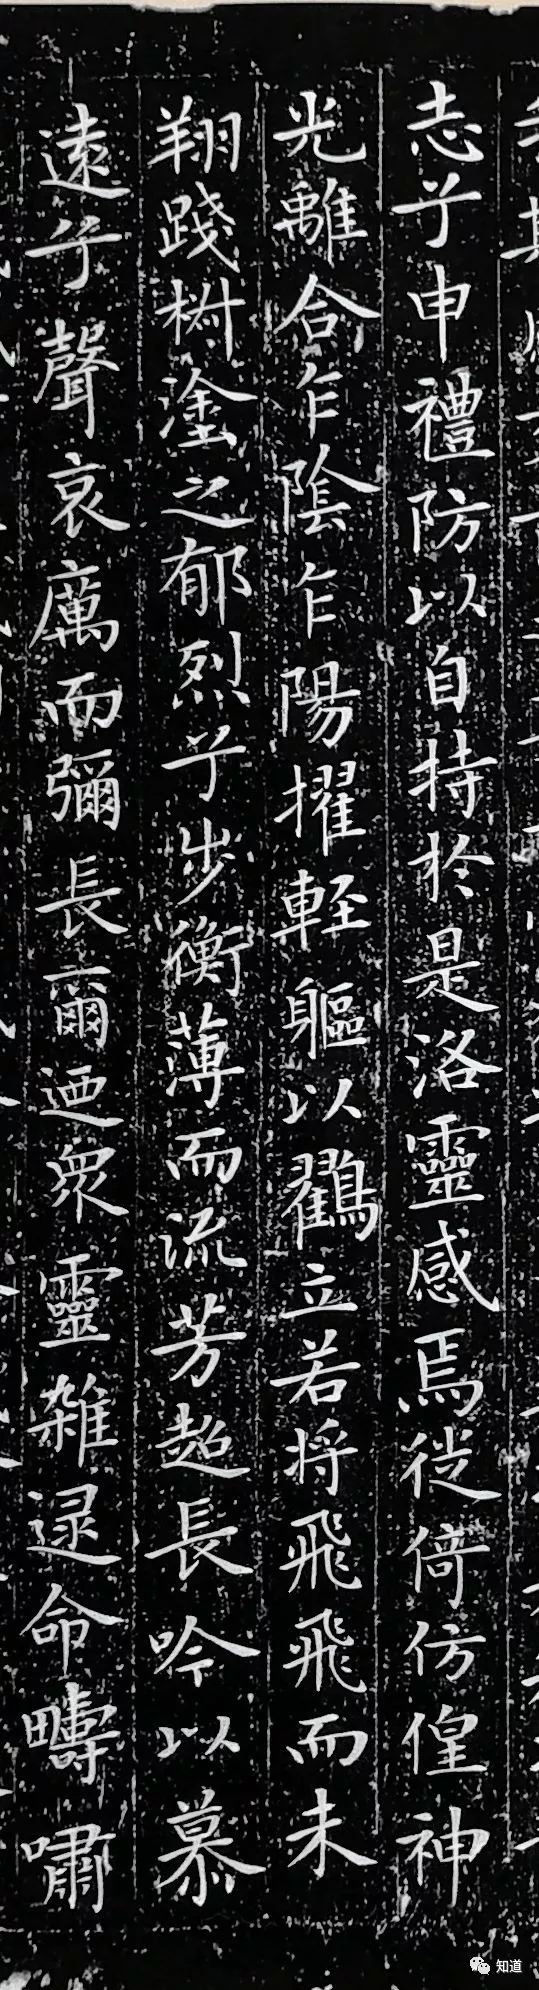 志兮申禮防以自持於是洛靈感焉徙倚仿偟神
光離合乍陰乍陽擢輕軀以鶴立若将飛飛而未
翔踐椒塗之郁烈兮步衡薄而流芳超長吟以慕
遠兮聲哀厲而彌長爾迺衆靈雜遝命疇嘯
知道